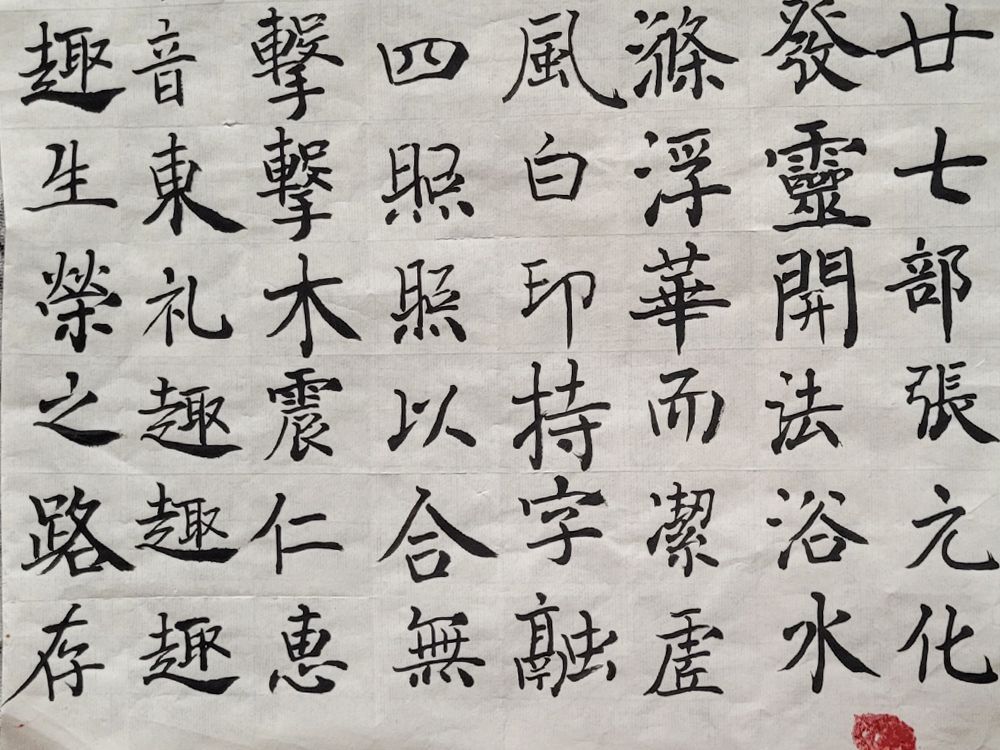 廿七部張元化
發靈開法浴水
滌浮華而潔虛
風白印持字融
四照照以合無
擊擊木震仁惠
音東礼趣趣趣
趣生榮之路存